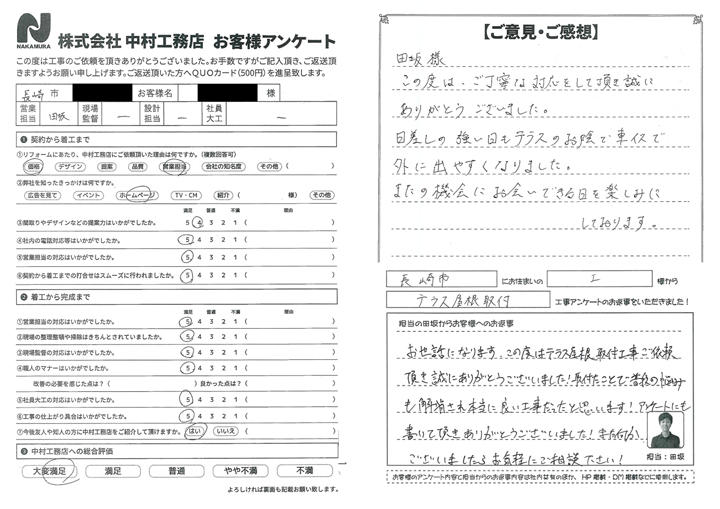 NAKAMURA
株式会社 中村工務店 お客様アンケート
この度は工事のご依頼を頂きありがとうございました。お手数ですがご記入頂き、ご返送頂
きますようお願い申し上げます。ご返送頂いた方へQUOカード(500円)を進呈致します。
長崎 市 お客様名 様
営業担当 田坂 現場監督 ー 設計担当 ー 社員大工 ー
❶ 契約から着工まで
①リフォームにあたり、中村工務店にご依頼頂いた理由は何ですか。(複数回答可)
価格 デザイン 提案 品質 営業担当 会社の知名度 その他 ( )
②弊社を知ったきっかけは何ですか。
広告を見て イベント ホームページ TV・CM 紹介 ( 様) その他
満足 普通 不満 理由
③間取りやデザインなどの提案力はいかがでしたか。 5 4 3 2 1 ( )
④社内の電話対応等はいかがでしたか。 5 4 3 2 1 ( )
⑤営業担当の対応はいかがでしたか。 5 4 3 2 1 ( )
⑥契約から着工までの打合せはスムーズに行われましたか。 5 4 3 2 1 ( )
❷ 着工から完成まで
満足 普通 不満 理由
①営業担当の対応はいかがでしたか。 5 4 3 2 1 ( )
②現場の整理整頓や掃除はきちんとされていましたか。 5 4 3 2 1 ( )
③現場監督の対応はいかがでしたか。 5 4 3 2 1 ( )
④職人のマナーはいかがでしたか。 5 4 3 2 1 ( )
改善の必要を感じた点は?( ) 良かった点は?( )
⑤社員大工の対応はいかがでしたか。 5 4 3 2 1 ( )
⑥工事の仕上がり具合はいかがでしたか。 5 4 3 2 1 ( )
⑦今後友人や知人の方に中村工務店をご紹介して頂けますか。 はい いいえ ( )
❸ 中村工務店への総合評価
大変満足 満足 普通 やや不満 不満
よろしければ裏面も記載お願い致します。
【ご意見・ご感想】
田坂 様
この度は、ご丁寧な対応をして頂き誠に
ありがとうございました。
日差しの強い日もテラスのお陰で車イスで
外に出やすくなりました。
またの機会にお会いできる日を楽しみに
しております。
長崎市 にお住まいの 工 様から
テラス屋根取付 工事アンケートのお返事をいただきました!
担当の田坂からお客様へのお返事
お世話になります。この度はテラス屋根取付工事ご依頼
頂き誠にありがとうございました!取付たことで お悩み
も解消され本当に良い工事だったと思います!アンケートにも
書いて頂きありがとうございました!また何か
ございましたらお気軽にご相談下さい!
担当:田坂
お客様のアンケート内容と担当からのお返事内容は社内は勿のほか、HP掲載・DM掲載などに使用します。